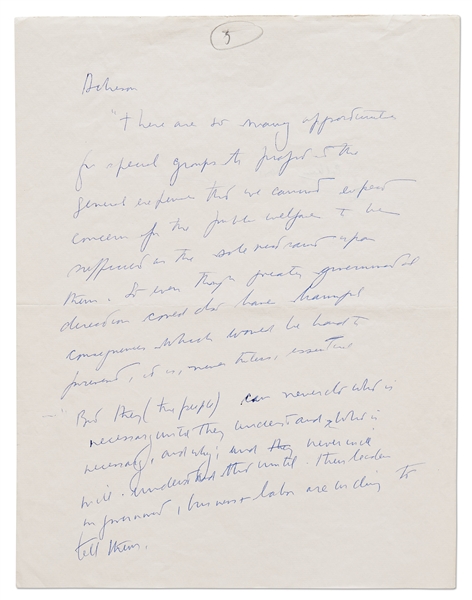 3
Acheson
"There are so many opportunities
for special groups to profit at the
general expense that we cannot expect
concern for the public welfare to be
sufficient as the sole restraint upon
them. So even though greater governmental
direction could also have harmful
consequences which would be hard to
prevent, it is, nevertheless, essential
"But they (the people) can never do what is
necessary until they understand what is
necessary, and why; and they never will
understand this until their leaders
in government, business + labor are willing to
tell them.